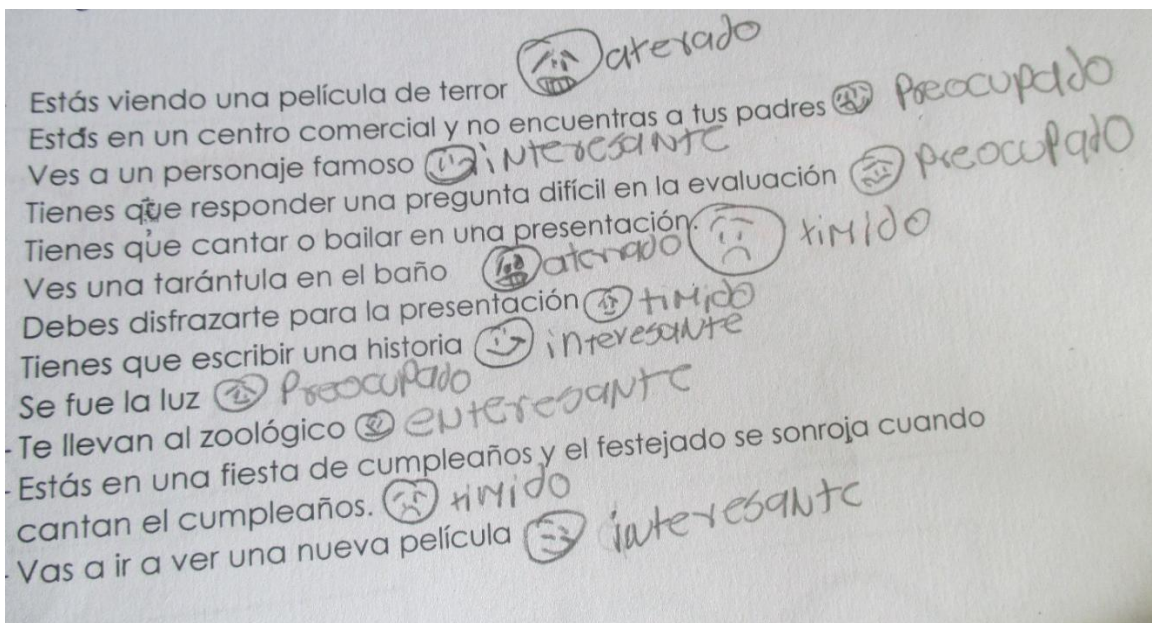 Estás viendo una película de terror aterado
Estás en un centro comercial y no encuentras a tus padres Preocupado
Ves a un personaje famoso interesante
Tienes que responder una pregunta difícil en la evaluación preocupado
Tienes que cantar o bailar en una presentación. timido
Ves una tarántula en el baño aterrado
Debes disfrazarte para la presentación timido
Tienes que escribir una historia interesante
Se fue la luz Preocupado
- Te llevan al zoológico enteresante
- Estás en una fiesta de cumpleaños y el festejado se sonroja cuando
cantan el cumpleaños. timido
- Vas a ir a ver una nueva película interesante